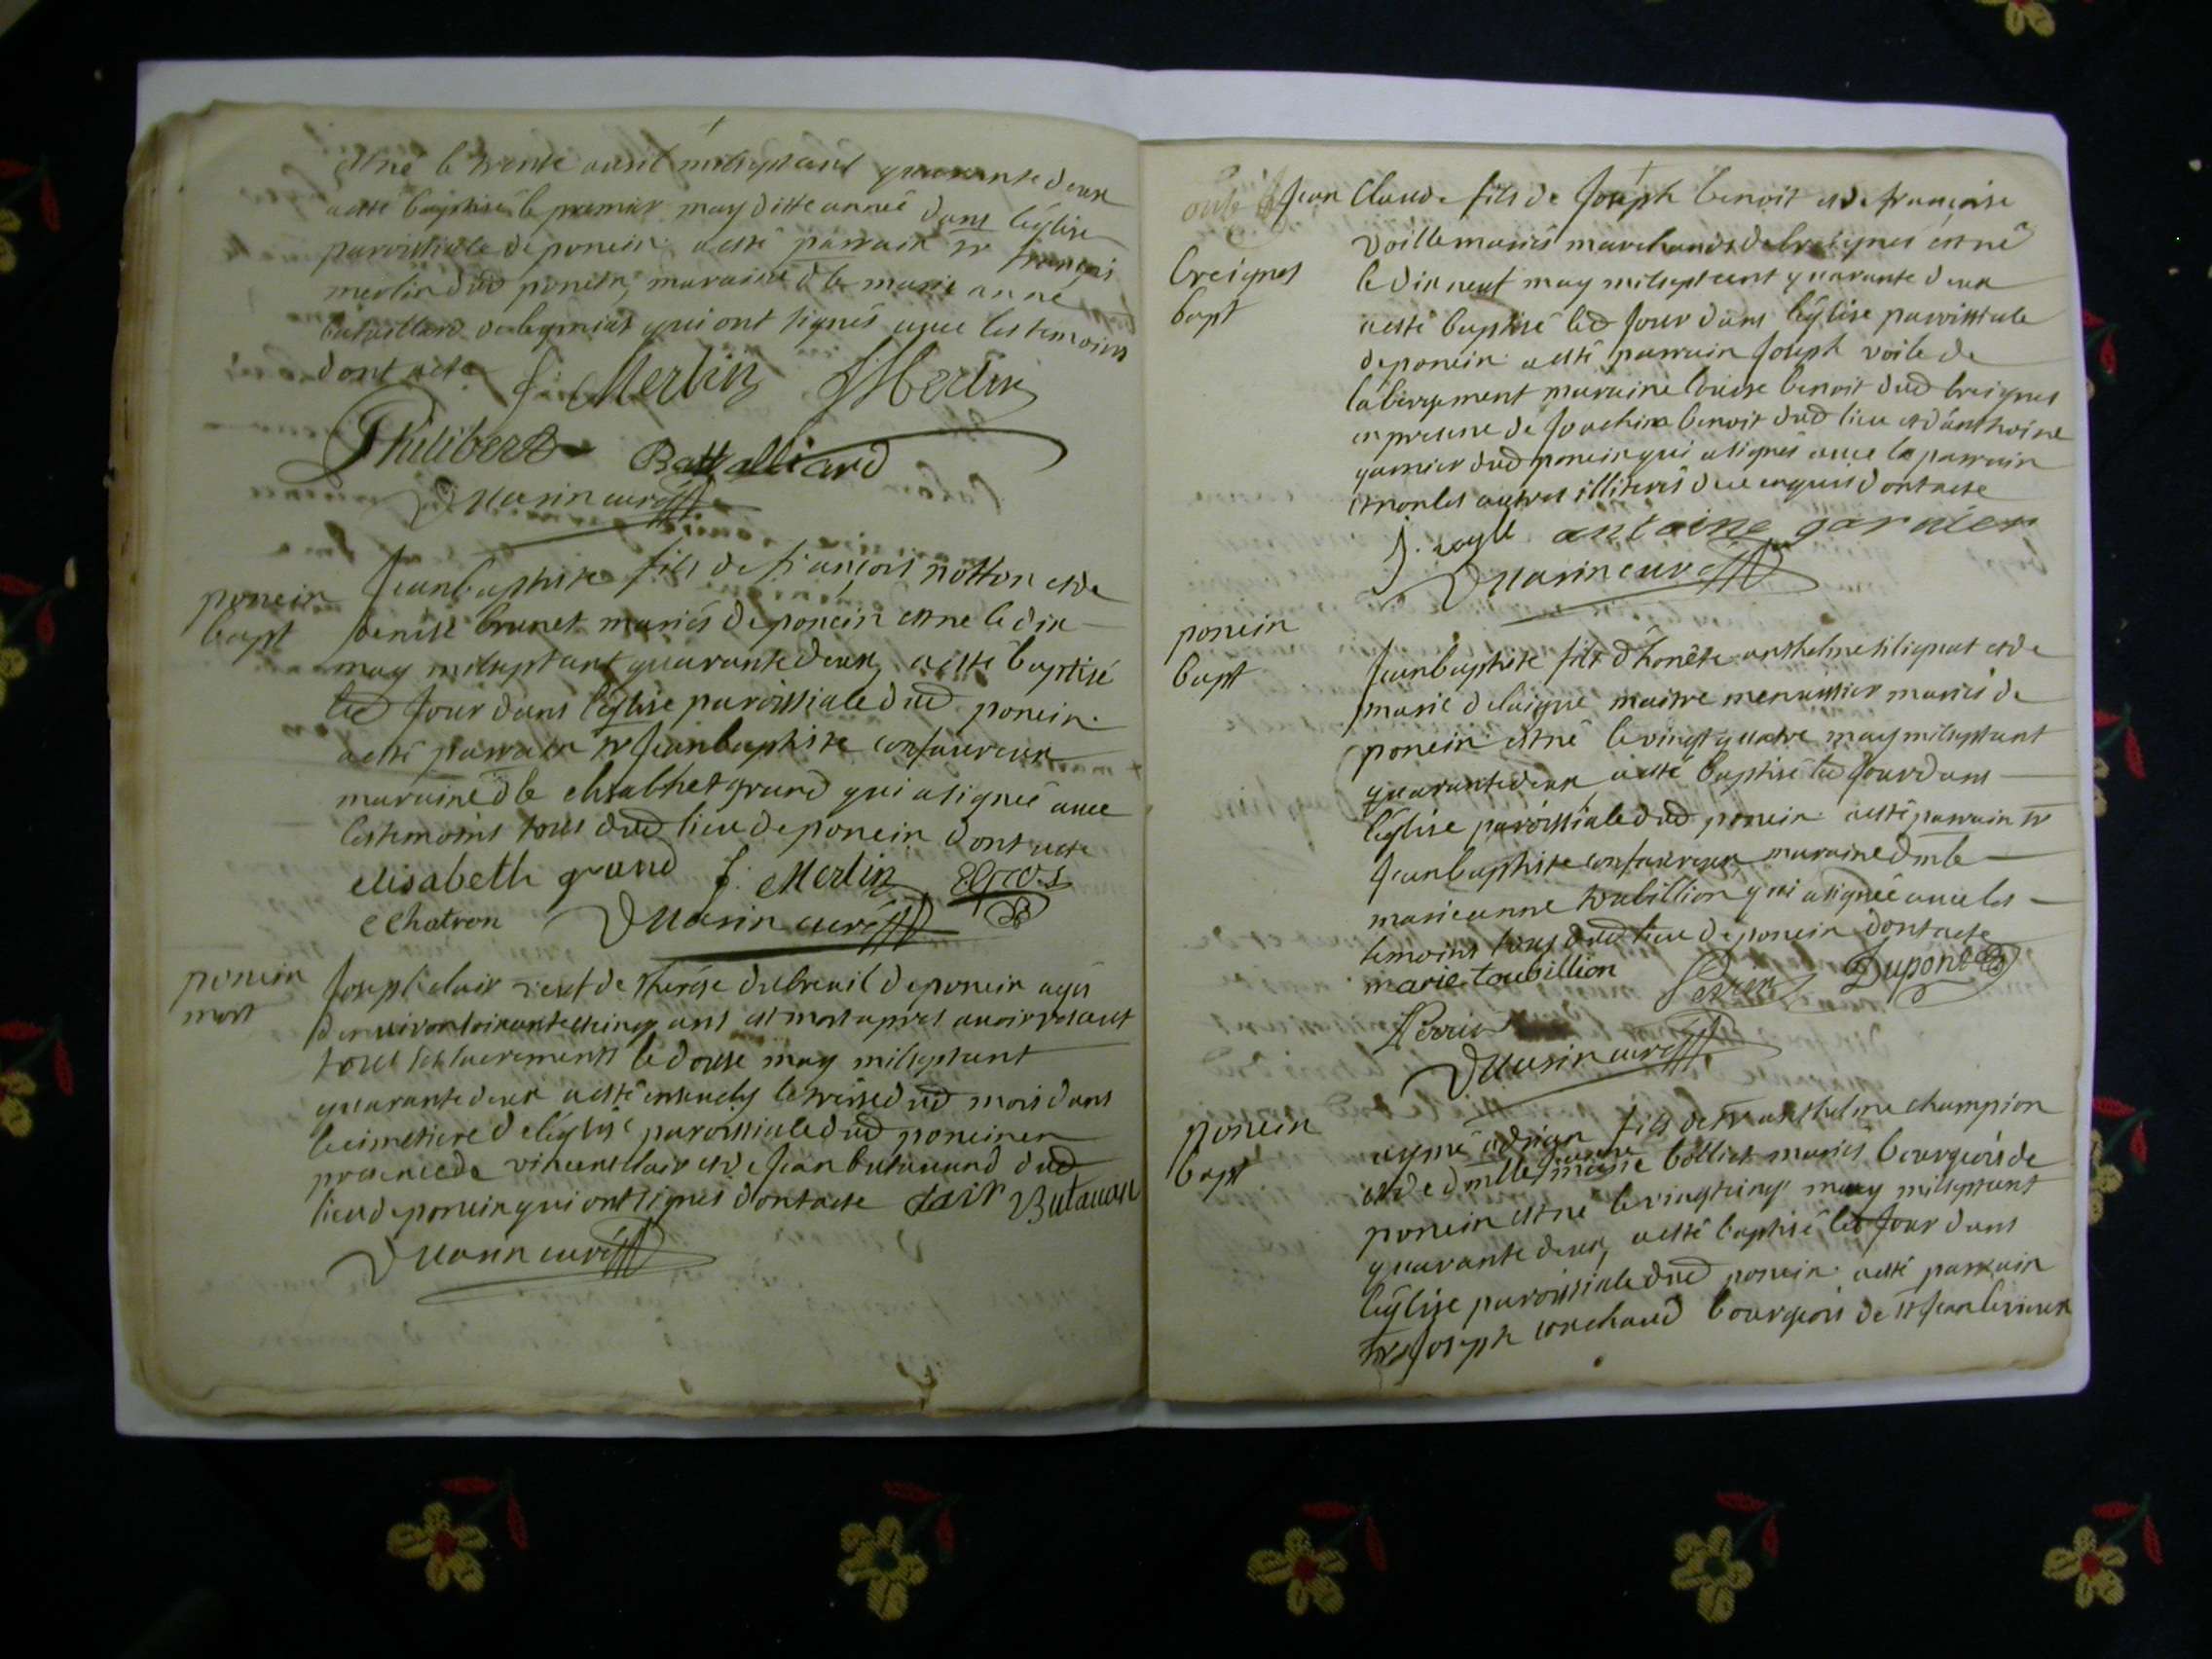 est né le trente avril mil sept cent quarante deux
a esté baptisé le premier may ditte année dans l'église
paroissiale de poncin a esté parrain sr françois
merlin dud poncin, maraine dlle marie anne
bataillard de leymiat qui ont signés avec les temoins
dont acte f: Merlin Merlin
Philibert Battalliard
Marin curé
poncin
bapt
Jean baptiste fils de françois notton et de
denise brunet mariés de poncin est né le dix
may mil sept cent quarante deux, a esté baptisé
led Jour dans l'église paroissiale dud poncin
a esté parrain sr Jean baptiste confavreux
maraine dlle elisabhet grand qui a signée avec
les temoins tous dud lieu de poncin dont acte
elisabeth grand f: Merlin
Chatron Marin curé
poncin
mort
Joseph clair veuf de Therese dubreuil de poncin agés
d'environ soixante cinq ans est mort apres avoir receut
tous les sacrements le douse may mil sept cent
quarante deux a esté ensevely le treise dud mois dans
le cimetiere de l'église paroissiale dud poncin en
presence de vincent clair et de Jean butavand dud
lieu de poncin qui ont signés dont acte clair Butavan
Marin curé
Jean Claude fils de Joseph benoit et de françoise
breignes
bapt
voille mariés marchands de breignes est né
le dix neuf may mil sept cent quarante deux
a esté baptisé led Jour dans l'église paroissiale
de poncin a esté parrain Joseph voile de
l'abergement maraine louise benoit dud breignes
en presence de Joachim benoit dud lieu et d'anthoine
garnier dud poncin qui a signés avec le parrain
et non les autres illiterés de ce enquis dont acte
J. voyll antoine garnier
Marin curé
poncin
bapt
Jean baptiste fils d'honête anthelme silignat et de
marie delaigue maitre menuissier mariés de
poncin est né le vingt quatre may mil sept cent
quarante deux, a esté baptisé led Jour dans
l'église paroissiale dud poncin a esté parrain sr
Jean baptiste confavreux, maraine dmlle
marie anne toubillion qui a signée avec les
temoins tous dud lieu de poncin dont acte
marie toubillion Perrin Dupont
Perrin
Marin curé
poncin
bapt
aymé adrian fils de sr anthelme champion
et de dmlle marie anne bolliet mariés bourgeois de
poncin est né le vingt cinq may mil sept cent
quarante deux, a esté baptisé led Jour dans
l'église paroissiale dud poncin a esté parrain
sr Joseph conchaud bourgeois de st Jean le vieux